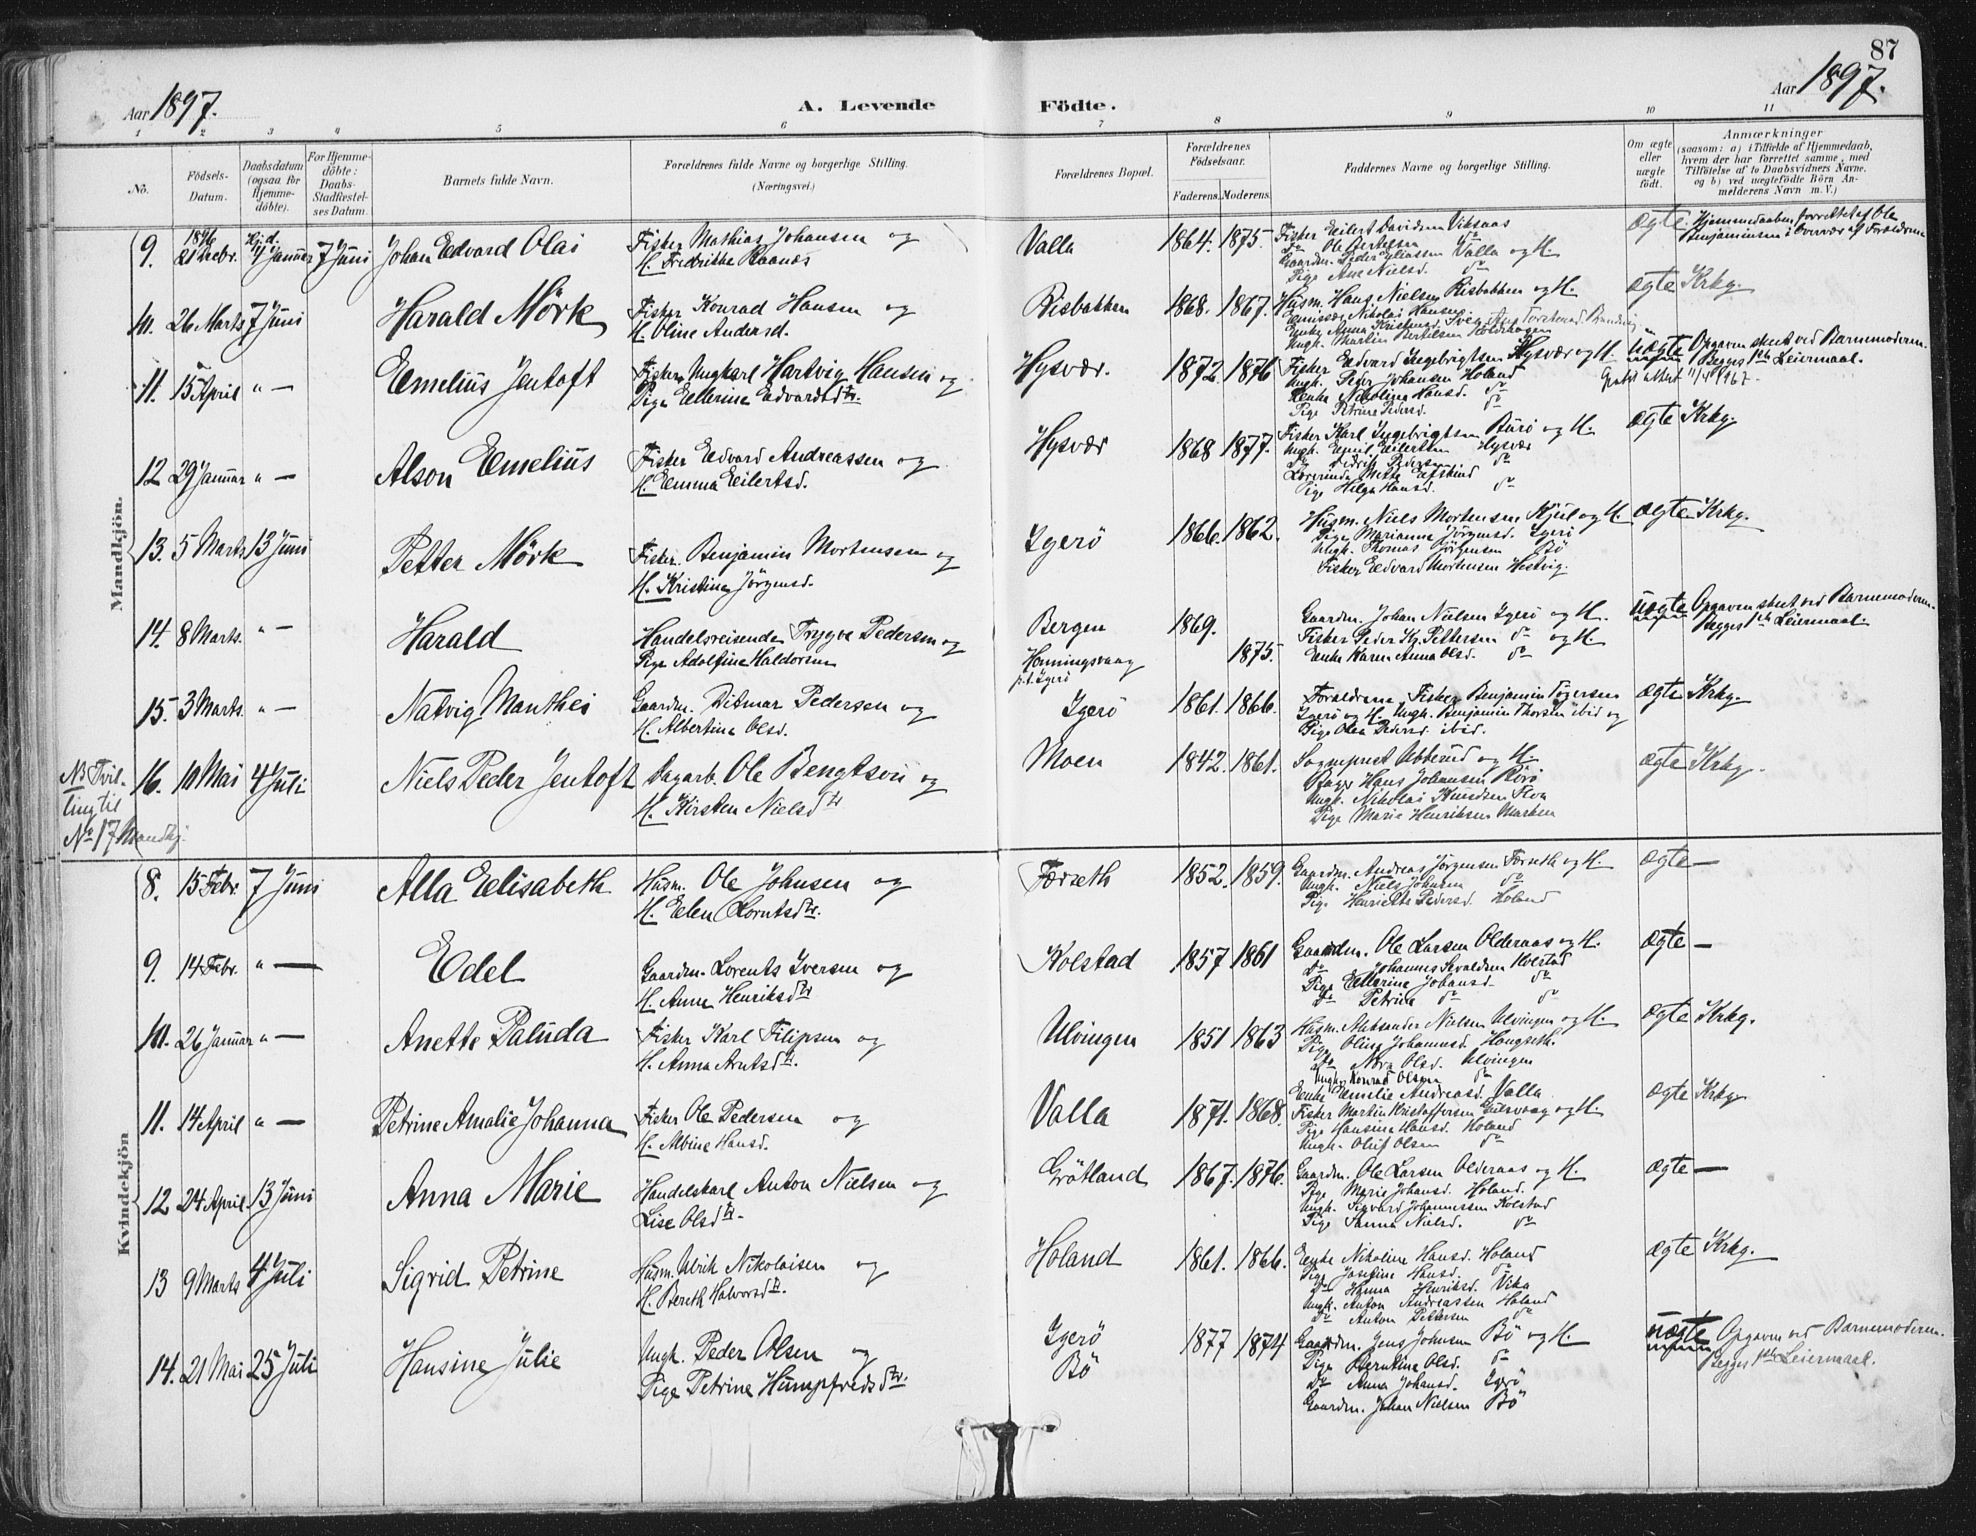 87
Aar 1897.
A. Levende Födte.
Aar 1897.
1 2 3 4 5 6 7 8 9 10 11
No.
Födsels-Datum.
Daabsdatum (ogsaa for Hjemme-döbte).
For Hjemme-döbte: Daabs-Stadfæstel-ses Datum.
Barnets fulde Navn.
Forældrenes fulde Navne og borgerlige Stilling.
(Næringsvei.)
Forældrenes Bopæl.
Forældrenes Födselsaar.
Faderens. Moderens.
Faddernes Navne og borgerlige Stilling.
Om ægte eller uægte födt.
Anmærkninger
(saasom: a) i Tilfælde af Hjemmedaab,
hvem der har forrettet samme, med
Tilföielse af to Daabsvidners Navne,
og b) ved uægtefödte Börn An-
melderens Navn m. V.)
Mandkjön.
9. 1896 21 Decbr. Hjd. 1/1 Januar 7 Juni Johan Edvard Olai
Fisker Mathias Johansen og
H. Fredrikke Raanes
Valla 1864. 1875.
Fisker Eilert Davidsen Viksaas
Do Ole Bertelsen do
Gaardm. Peder Eliassen Valla og H.
Pige Ane Nielsd. do
ægte. Hjemmedaaben forrettet af Ole
Benjaminsen i Overvær af Forældrene
10. 26 Marts 7 Juni Harald Mörk
Fisker Konrad Hansen og
H. Oline Andersd.
Risbakken 1868. 1867.
Husm. Hans Nielsen Risbakken og H.
Emissær Nikolai Hansen
Ungk. Martin Bertilsen Holdhagen
ægte Krkg.
11. 15 April " — Emelius Jentoft
Fisker, Ungkarl Hartvig Hansen og
Pige Ellerine Edvardsdtr.
Hysvær. 1872. 1876
Fisker Edvard Ingebrigtsen Hysvær og H.
Ungk. Peder Johansen Holand
Enke Nikoline Hansd. do
Pige Petrine Pedersd. do
uægte Opgaven skeet ved Barnemoderen.
Begges 1ste Leiermaal.
Gratis attest 11/4 1967.
12 29 Januar " — Alson Emelius
Fisker Edvard Andreassen og
H. Emma Eilertsd.
Hysvær 1868 1877.
Fisker Karl Ingebrigtsen Burö og H.
Ungk. Emil Eilertsen Hysvær
Do Didrik Pedersen do
Lærerinde Mette Eftskind
Pige Helga Hansd. do
ægte Krkg.
13. 5 Marts 13 Juni Petter Mörk
Fisker Benjamin Mortensen og
H. Kristine Jörgensd.
Igerö 1866. 1862.
Husm. Niels Mortensen Kjul og H.
Pige Marianna Jörgensd. Igerö
Ungk. Thomas Jörgensen Bö
Fisker Edvard Mortensen Hestvig.
ægte Krkg.
14. 8 Marts. " — Harald
Handelsreisende Trygve Pedersen og
Pige Adolfine Haldorsen
Bergen 1869.
Honningsvaag 1875.
p.t. Igerö
Gaardm. Johan Nielsen Igerö og H.
Fisker Peder Kr. Pettersen do og H.
Enke Karen Anna Olsd. do
uægte Opgaven skeet ved Barnemoderen.
Begges 1ste Leiermaal.
15. 3 Marts. " — Natvig Manthei
Gaardm. Ditmar Pedersen og
H. Albertine Olsd.
Igerö 1861. 1866.
Forældrene Fisker Benjamin Tögersen
Igerö og H. Ungk. Benjamin Thorsen ibid og
Pige Olea Pedersd. ibid.
ægte Krkg.
NB Tvil-
ling til
No 17 Mandkj.
16. 10 Mai 4 Juli Niels Peder Jentoft
Dagarb. Ole Bengtson og
H. Kirsten Nielsdtr
Moen 1842. 1861.
Sogneprest Abberud og H.
Bager Hans Johansen Rörö
Ungk. Nikolai Knudsen Flon
Pige Marie Henriksen Marken
ægte Krkg.
Kvindekjön
8. 15 Febr. 7 Juni Alla Elisabeth
Husm. Ole Johnsen og
H. Elen Lorntsdtr.
Forseth 1852. 1859.
Gaardm. Andreas Jörgensen Forseth og H.
Ungk. Niels Johnsen do
Pige Henriette Pedersd. Holand
ægte —
9. 14 Febr. " — Edel
Gaardm. Lorents Iversen og
H. Anne Henriksdtr
Kolstad 1857. 1861
Gaardm. Ole Larsen Olderaas og H.
Do Johannes Sevaldsen Kolstad
Pige Ellerine Johansd. do
Do Petrine do do
ægte —
10. 26 Januar " — Anette Paluda
Fisker Karl Filipsen og
H. Anna Arntsdtr.
Ulvingen 1851 1863
Husm. Aleksander Nielsen Ulvingen og H.
Pige Oline Johannesd. Haugseth.
Do Nora Olsd. Ulvingen
Ungk. Konrad Olsen do
ægte Krkg.
11. 14 April " — Petrine Amalie Johanna
Fisker Ole Pedersen og
H. Albine Hansd.
Valla 1871. 1868.
Enke Emilie Andreasd. Valla
Fisker Martin Kristoffersen Gulsvaag og H.
Pige Hansine Hansd. Holand
Ungk. Oluf Olsen do
ægte Krkg.
12 24 April 13 Juni Anna Marie
Handelskarl Anton Nielsen og
Lise Olsdtr.
Grötland 1867. 1876.
Gaardm. Ole Larsen Olderaas og H.
Pige Marie Johansd. Holand.
Ungk. Sigvard Johannessen Kolstad
Pige Sanna Nielsd. do
ægte —
13 9 Marts 4 Juli Sigrid Petrine
Husm. Ulrik Nikolaisen og
H. Bereth Halvorsdtr.
Holand 1861. 1866.
Enke Nikoline Hansd. Holand
Pige Josefine Hansd. do
Do Hanna Henriksd. Vika
Ungk. Anton Andreassen Holand
Do Anton Pettersen do
ægte Krkg.
14. 21 Mai 25 Juli Hansine Julie
Ungk. Peder Olsen og
Pige Petrine Humpfredsdtr.
Igerö 1877 1874
Bö
Gaardm. Jens Johnsen Bö og H.
Pige Berntine Olsd. do
Do Anna Johansd. Igerö
Gaardm. Johan Nielsen Bö
uægte Opgaven ved Barnemoderen.
Begges 1ste Leiermaal.